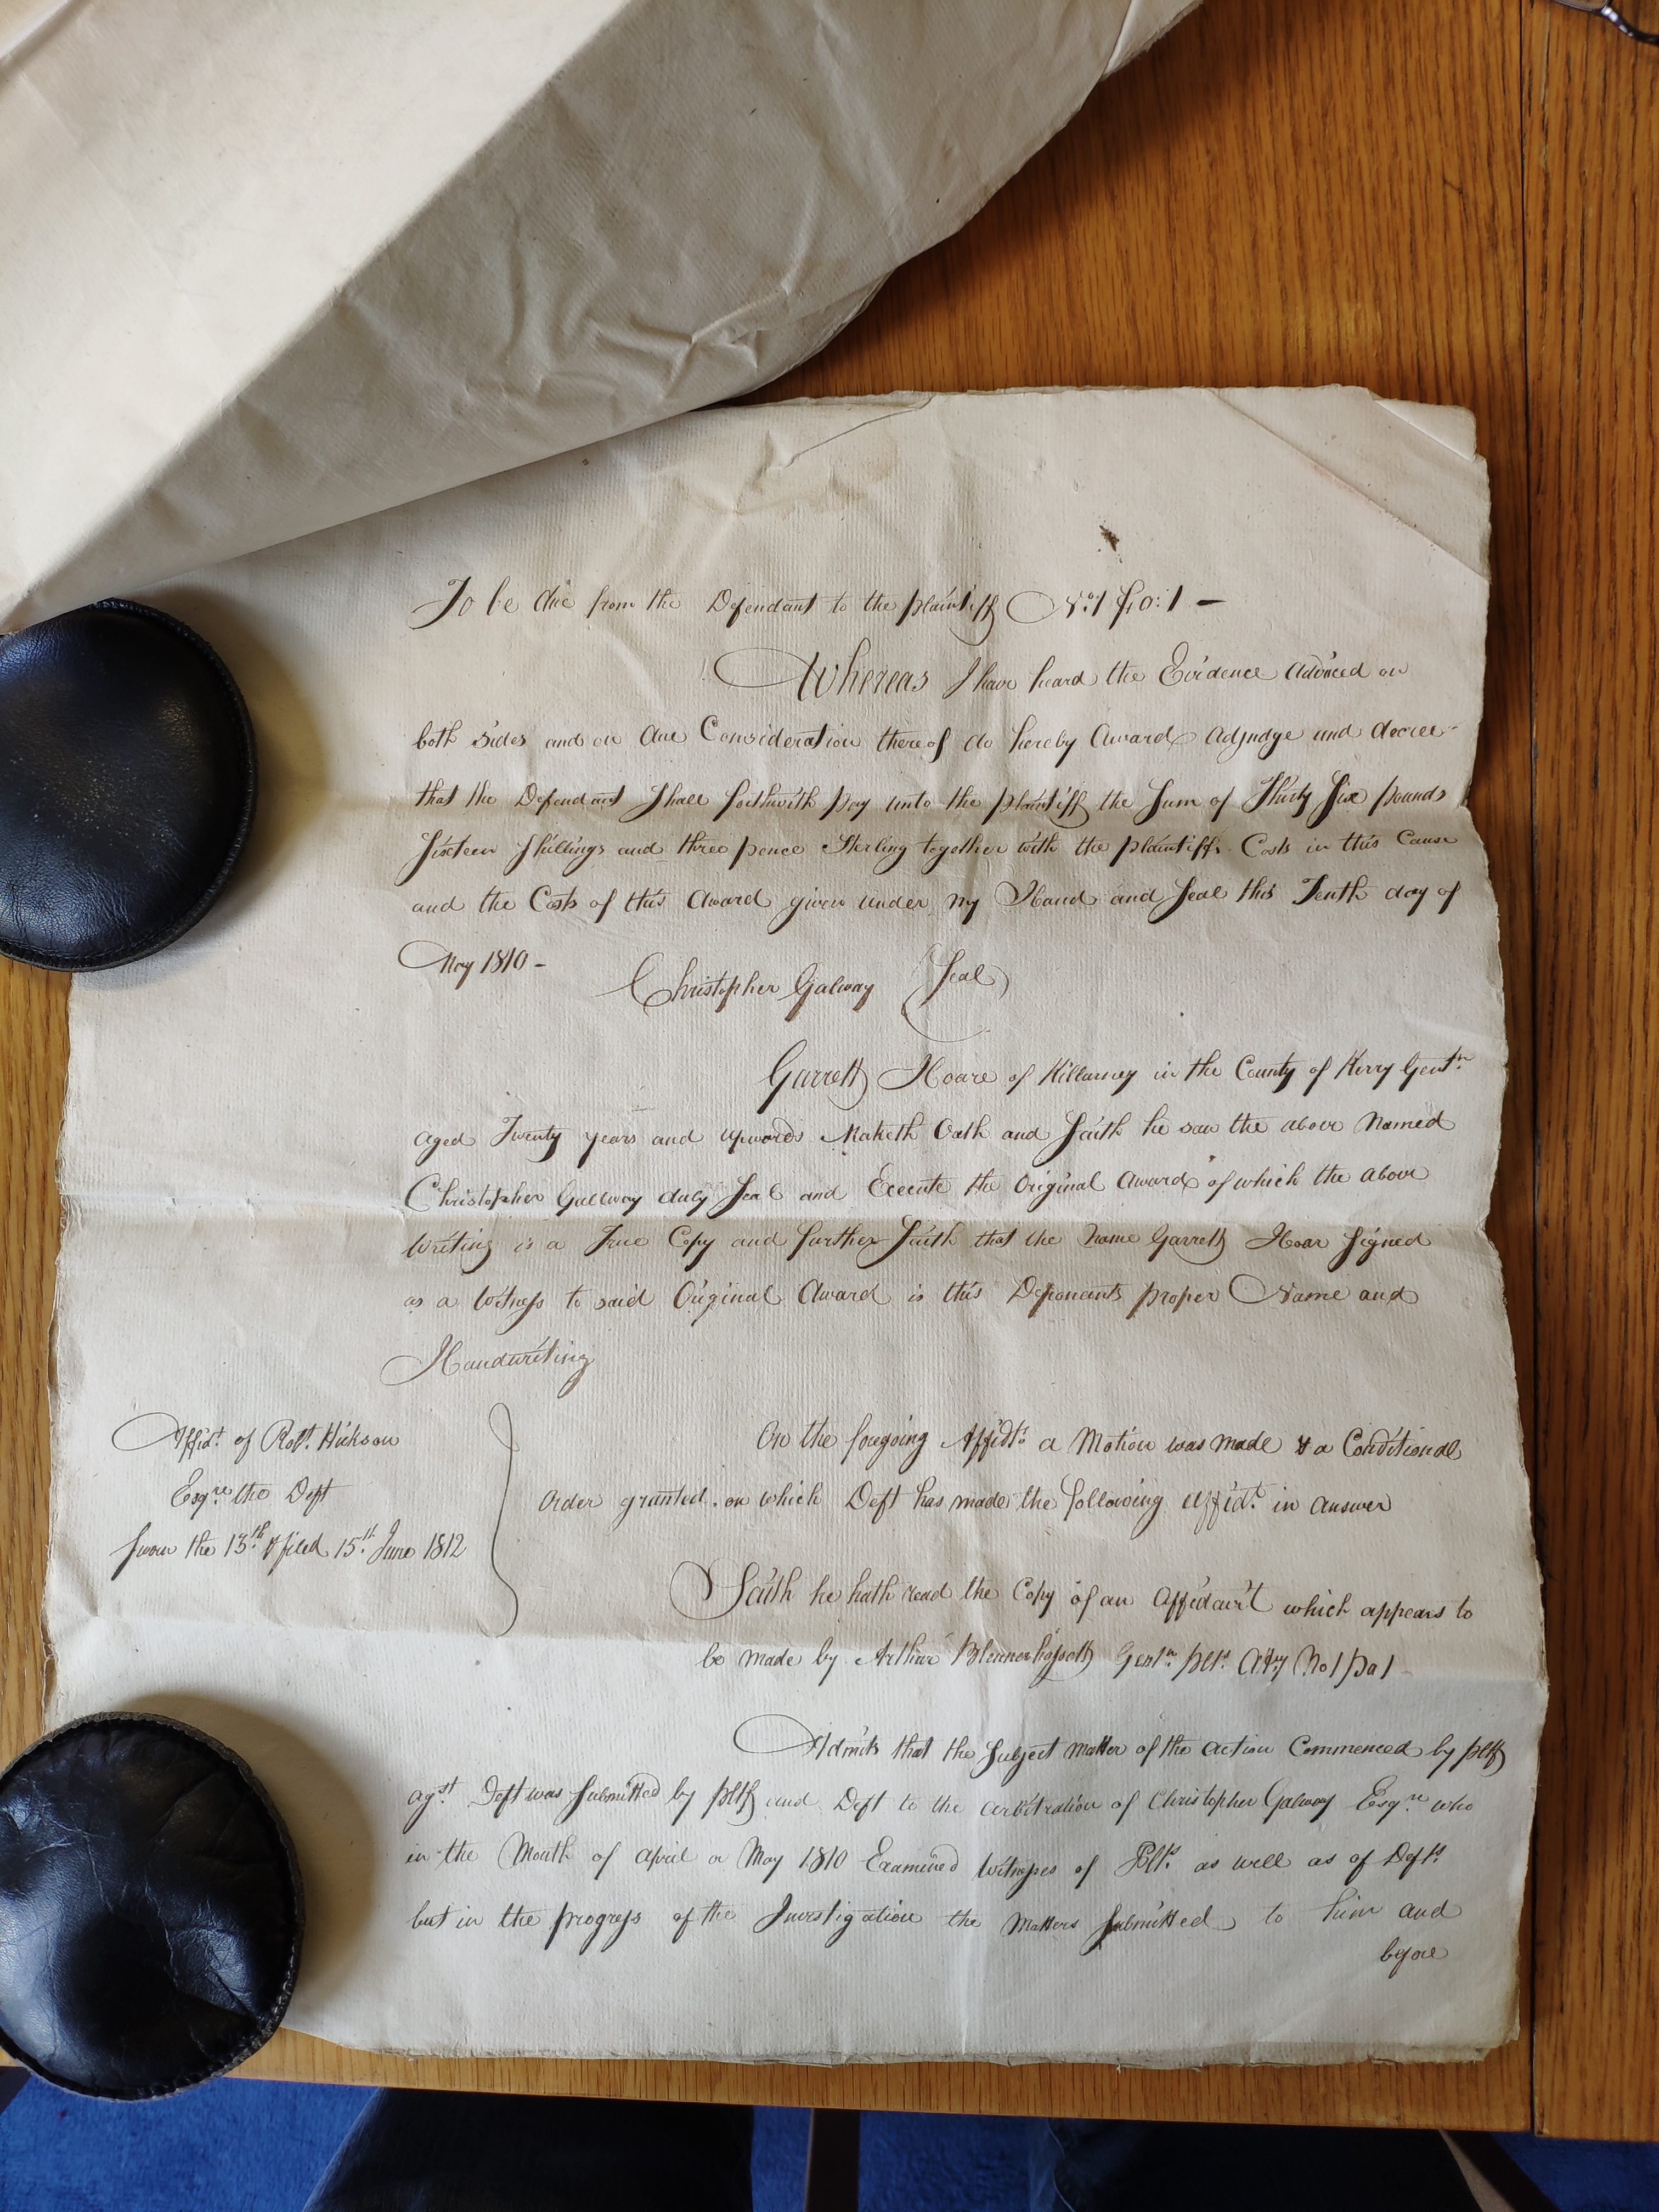 To be due from the Defendant to the plaintiff No. 1 fo: 1 —
Whereas I have heard the Evidence adduced on
both sides and on due Consideration thereof do hereby Award Adjudge and decree
that the Defendant Shall forthwith pay unto the plaintiff the Sum of Thirty Six pounds
Sixteen Shillings and three pence Sterling together with the plaintiffs Costs in this Cause
and the Costs of this Award given under my Hand and Seal this Tenth day of
May 1810 –
Christopher Galway (Seal)
Garrett Hoare of Killarney in the County of Kerry Gentn.
aged Twenty years and upwards Maketh Oath and Saith he saw the above Named
Christopher Gallway duly Seal and Execute the Original Award of which the above
Writing is a True Copy and further Saith that the Name Garrett Hoar Signed
as a Witness to said Original Award is this Deponants proper Name and
Handwriting
Affidt. of Robt. Hickson
Esqre. the Deft
Sworn the 13th. & filed 15th. June 1812
On the foregoing Affidts. a Motion was made & a Conditional
Order granted. on which Deft has made the following affidt. in answer
Saith he hath read the Copy of an Affidavit which appears to
be made by Arthur Blennerhassett Gentn. plts. Atty No 1 pa 1
Admits that the Subject matter of the action Commenced by pltff
agst. Deft was Submitted by pltff and Deft to the arbitration of Christopher Galway Esqre. who
in the Month of April or May 1810 Examined Witnesses of Plts. as well as of Defts.
but in the progress of the Investigation the Matters Submitted to him and
before